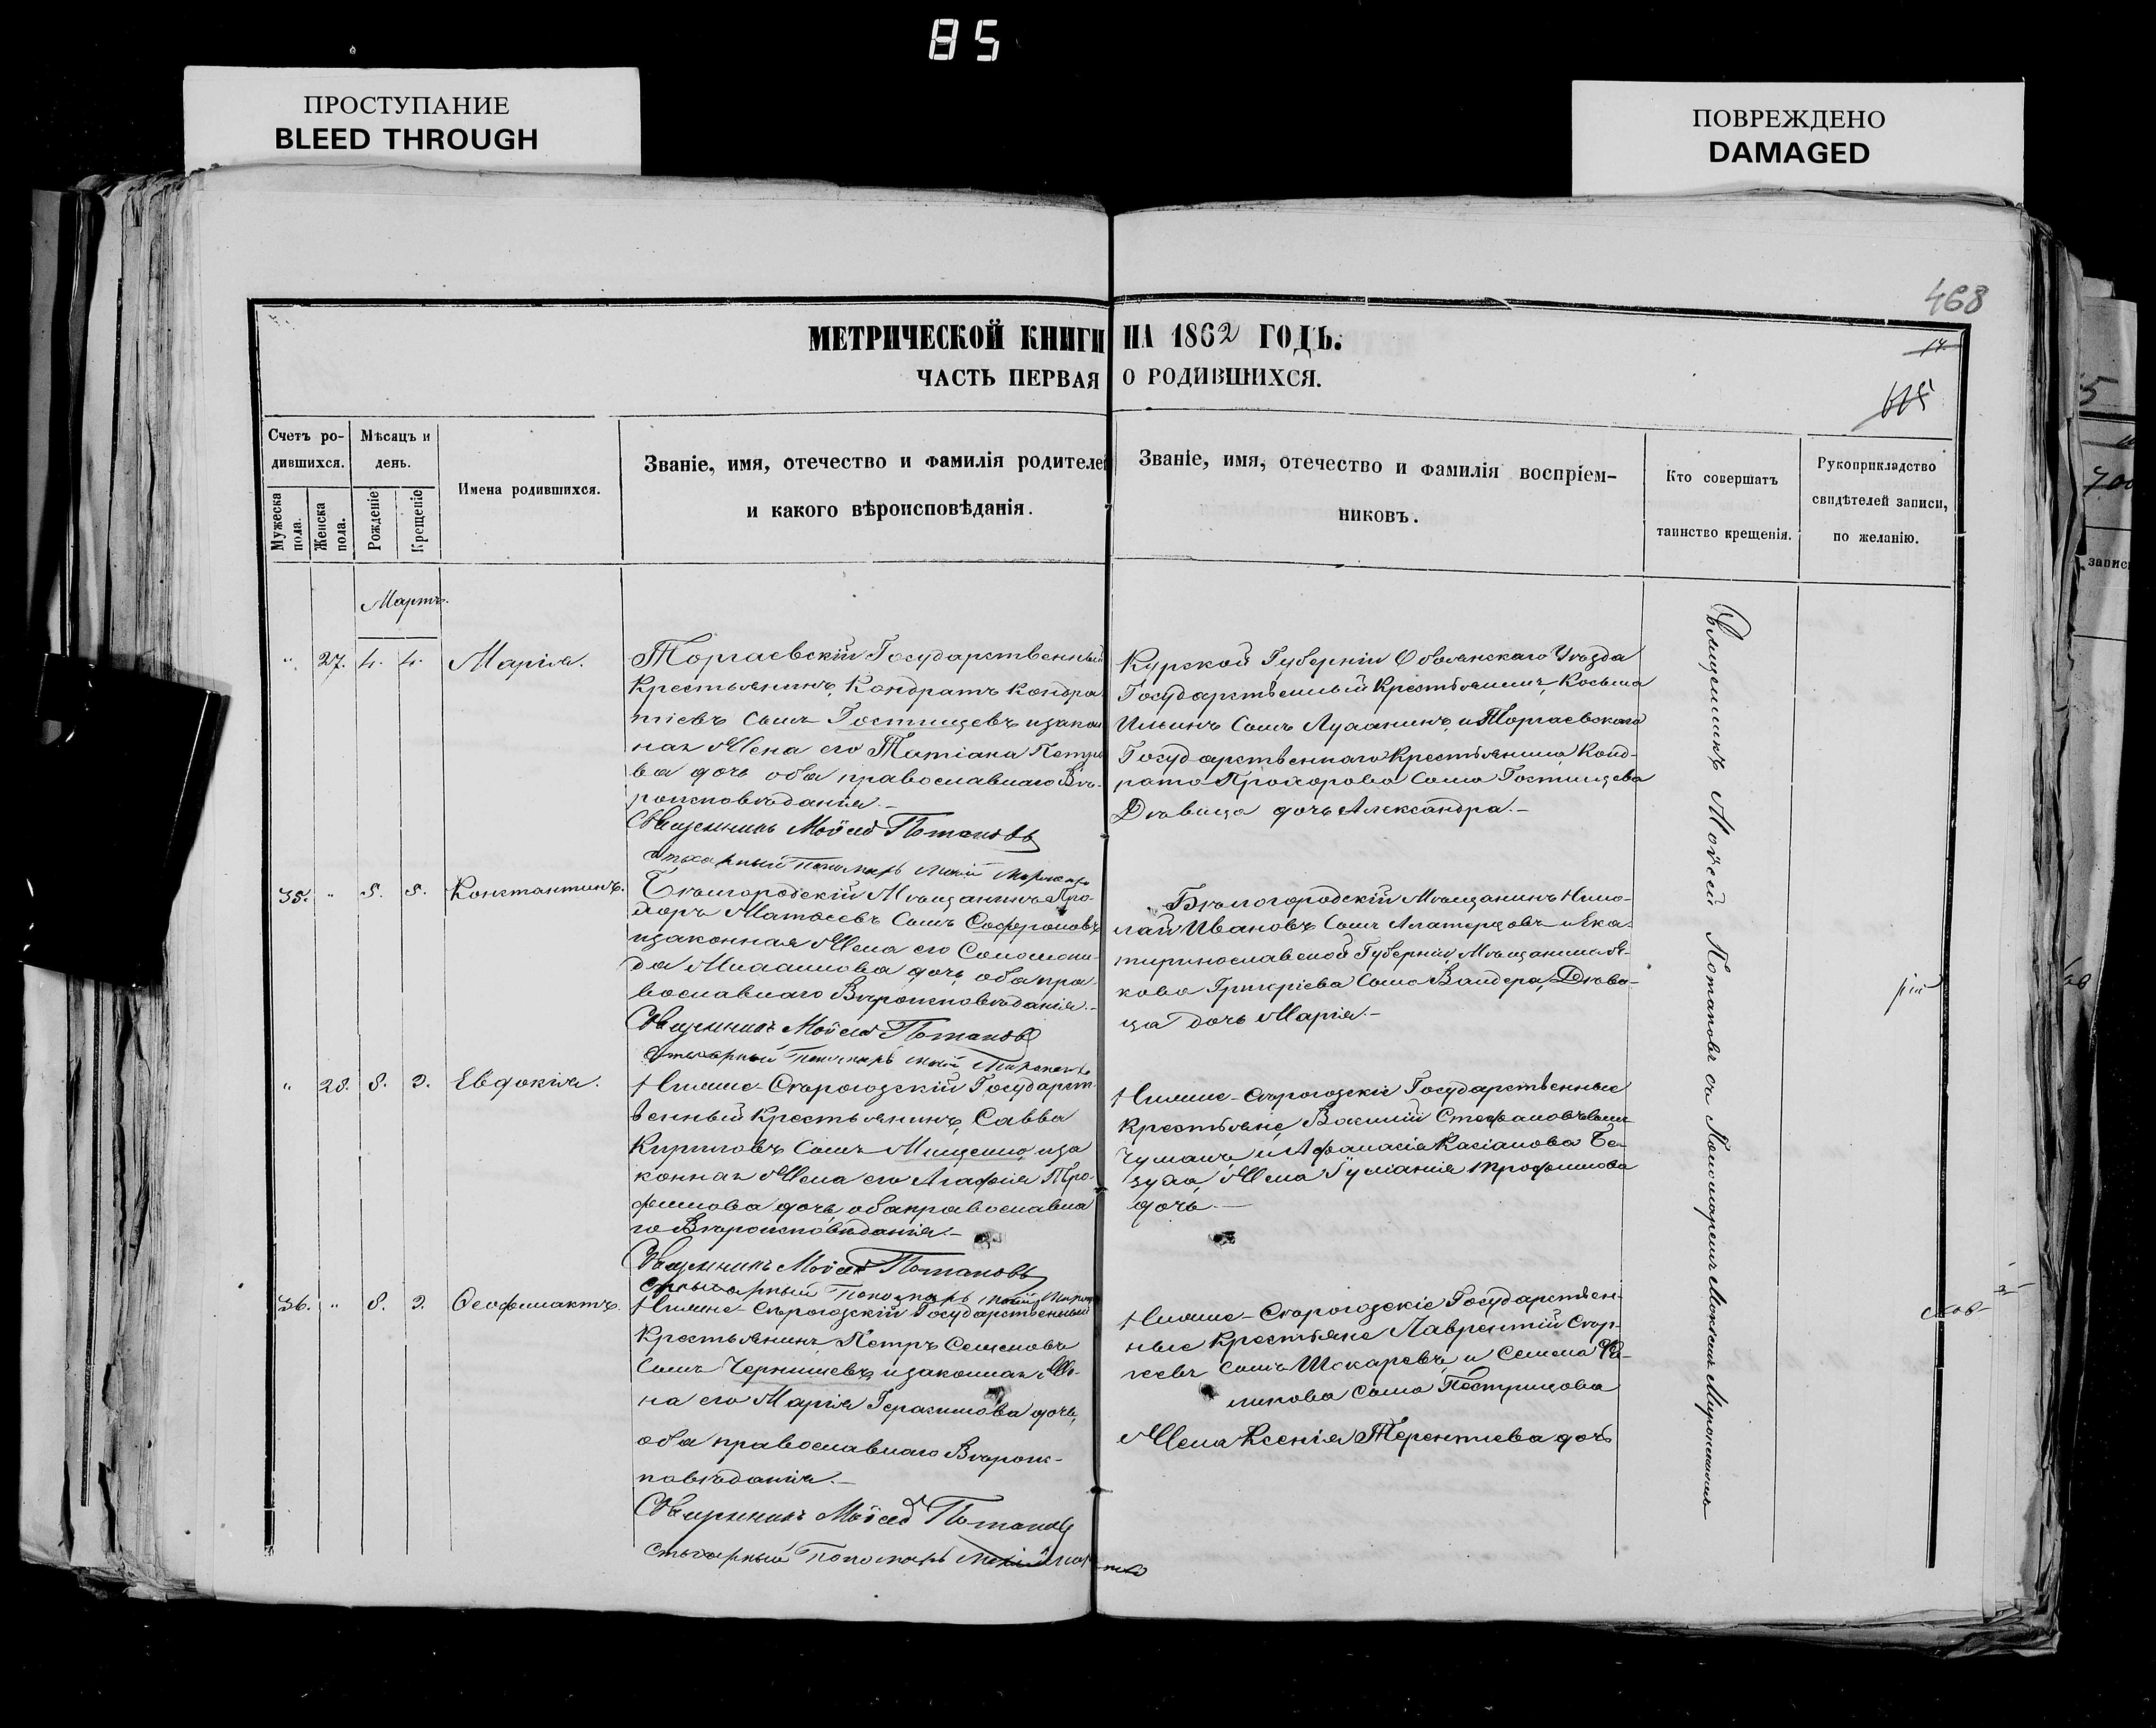 85
ПРОСТУПАНИЕ
BLEED THROUGH
ПОВРЕЖДЕНО
DAMAGED
468
МЕТРИЧЕСКОЙ КНИГИ НА 1862 ГОДЪ.
14.
ЧАСТЬ ПЕРВАЯ О РОДИВШИХСЯ.
Счетъ ро-
дившихся.
Мѣсяцъ и
день.
Мужеска
пола.
Женска
пола.
Рожденіе
Крещеніе
Имена родившихся.
Званіе, имя, отечество и фамилія родителей
и какого вѣроисповѣданія.
Званіе, имя, отечество и фамилія воспріем-
никовъ.
Кто совершатъ
таинство крещенія.
Рукоприкладство
свидѣтелей записи,
по желанію.
Мартъ.
" 27. 4. 4. Марія.
Торгаевскій Государственный
Крестьянинъ, Кондратъ Кондра
тіевъ Сынъ Гостищевъ и закон
ная Жена его Татіана Петро
ва дочь оба православнаго Вѣ-
роисповѣданія.-
Священникъ Мойсей Потаповъ
Стихарный Пономарь
Курской Губерніи Обоянскаго Уѣзда
Государственный Крестьянинъ, Косьма
Ильинъ Сынъ и Торгаевскаго
Государственнаго Крестьянина Конд-
рата Прохорова Сына Гостищева
Дѣвица дочь Александра.-
35. " 5. 5. Константинъ.
Бѣлгородскій Мѣщанинъ Про-
хоръ Матѳеевъ Сынъ Софроновъ
и законная Жена его Соломони-
да дочь, оба пра-
вославнаго Вѣроисповѣданія.-
Священникъ Мойсей Потаповъ
Стихарный Пономарь
Бѣлогородскій Мѣщанинъ Нико-
лай Ивановъ Сынъ и Ека-
теринославской Губерніи, Мѣщанина Я-
кова Григоріева Сына Дѣви-
ца дочь Марія.-
" 28. 8. 9. Евдокія.
Нижне-Сѣрогозскій Государст-
венный Крестьянинъ, Савва
Кириловъ Сынъ Мищенко, и за
конная Жена его Агафія Тро-
фимова дочь, оба православна
го Вѣроисповѣданія.-
Священникъ Мойсей Потаповъ
Стихарный Пономарь
Нижне-Сѣрогозскіе Государственные
Крестьяне, Василій Стефановъ Сынъ
Чумакъ, и Афанасія Касіанова Бе-
зуха, Жена Трофимова
дочь.-
36. " 8. 9. Ѳеофилактъ.
Нижне-Сѣрогозскій Государственный
Крестьянинъ, Петръ Семеновъ
Сынъ Чернышевъ, и законная Же-
на его Марія Герасимова дочь,
оба православнаго Вѣроис-
повѣданія.-
Священникъ Мойсей Потаповъ
Стихарный Пономарь
Нижне-Сѣрогозскіе Государствен-
ные Крестьяне Лаврентій Сер-
геевъ Сынъ Шекаревъ, и Семена Фи-
липова Сына
Жена Ксенія Терентіева дочь
Священникъ Мойсей Потаповъ съ Пономаремъ